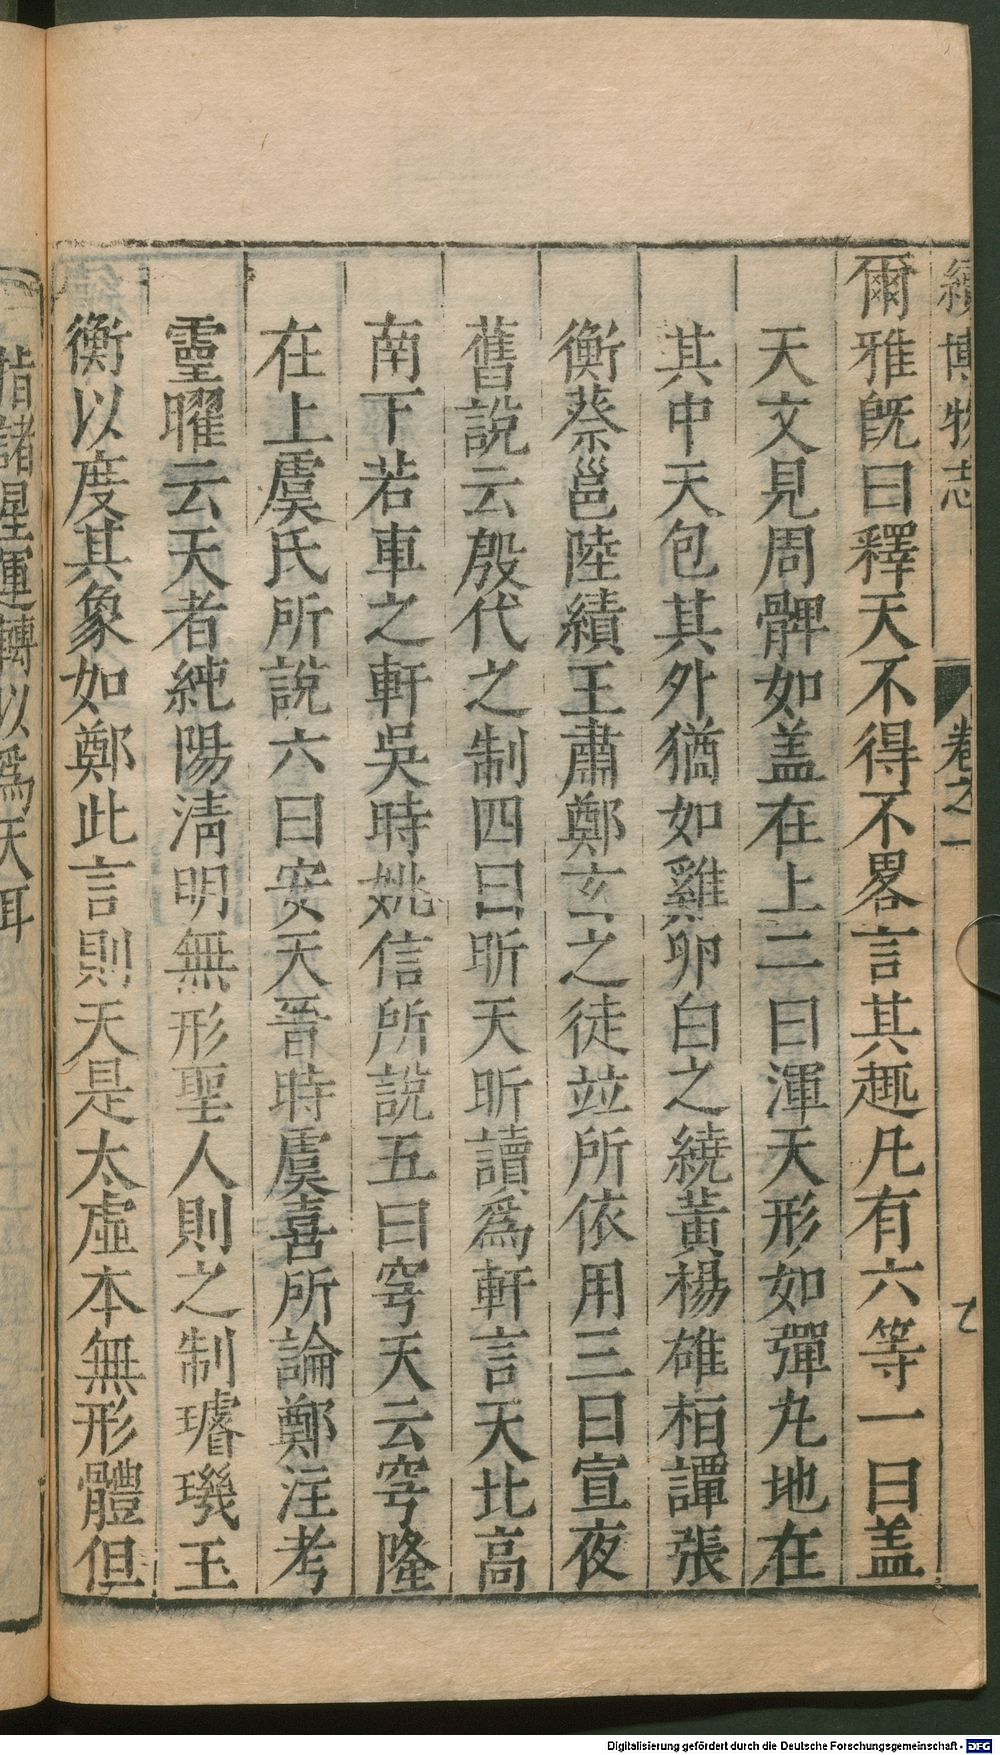 續博物志 卷之一 七
爾雅旣曰釋天不得不畧言其趣凡有六等一曰盖
天文見周髀如盖在上二曰渾天形如彈丸地在
其中天包其外猶如雞卵白之繞黃楊雄桓譚張
衡蔡邕陸績王肅鄭玄之徒竝所依用三曰宣夜
舊說云殷代之制四曰昕天昕讀爲軒言天北高
南下若車之軒吳時姚信所說五曰穹天云穹隆
在上虞氏所說六曰安天晉時虞喜所論鄭注考
靈曜云天者純陽淸明無形聖人則之制璿璣玉
衡以度其象如鄭此言則天是太虛本無形體但
指諸星運轉以爲天耳
Digitalisierung gefördert durch die Deutsche Forschungsgemeinschaft - DFG